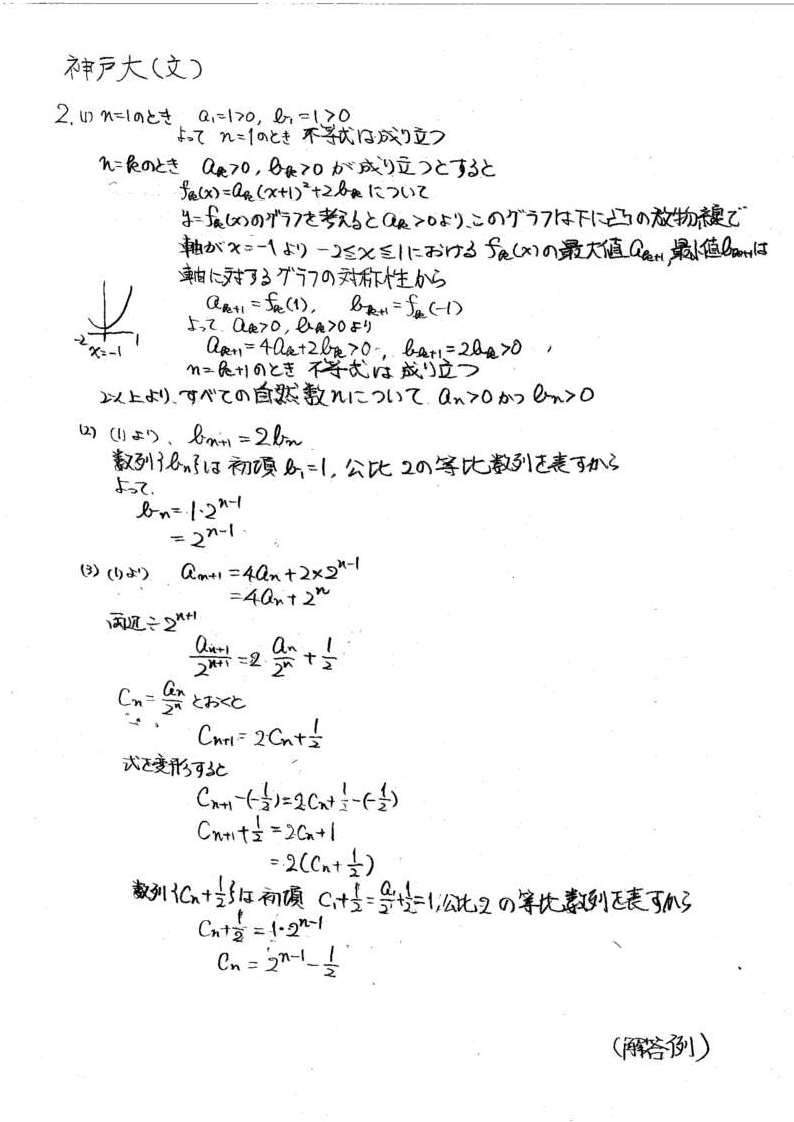 神戸大(文)
2. (1) n=1のとき a₁=1>0, b₁=1>0
よって n=1のとき 不等式は成り立つ
n=kのとき aₖ>0, bₖ>0 が成り立つとすると
fₖ(x)=aₖ(x+1)²+2bₖ について
y=fₖ(x)のグラフを考えると aₖ>0より、このグラフは下に凸の放物線で
軸が x=-1 より -2≦x≦1における fₖ(x)の最大値 aₖ₊₁, 最小値bₖ₊₁は
軸に対するグラフの対称性から
aₖ₊₁=fₖ(1), bₖ₊₁=fₖ(-1)
よって aₖ>0, bₖ>0より
aₖ₊₁=4aₖ+2bₖ>0, bₖ₊₁=2bₖ>0
-2 x=-1 1
n=k+1のとき 不等式は成り立つ
以上より、すべての自然数nについて aₙ>0かつbₙ>0
(2) (1)より、 bₙ₊₁=2bₙ
数列{bₙ}は初項 b₁=1, 公比 2の等比数列を表すから
よって、
bₙ=1·2ⁿ⁻¹
=2ⁿ⁻¹
(3) (1)より aₙ₊₁=4aₙ+2×2ⁿ⁻¹
=4aₙ+2ⁿ
両辺÷2ⁿ⁺¹
aₙ₊₁/2ⁿ⁺¹=2·aₙ/2ⁿ+1/2
Cₙ=aₙ/2ⁿ とおくと
Cₙ₊₁=2Cₙ+1/2
式を変形すると
Cₙ₊₁-(-1/2)=2Cₙ+1/2-(-1/2)
Cₙ₊₁+1/2=2Cₙ+1
=2(Cₙ+1/2)
数列{Cₙ+1/2}は初項 C₁+1/2=a₁/2+1/2=1, 公比2の等比数列を表すから
Cₙ+1/2=1·2ⁿ⁻¹
Cₙ=2ⁿ⁻¹-1/2
(解答例)